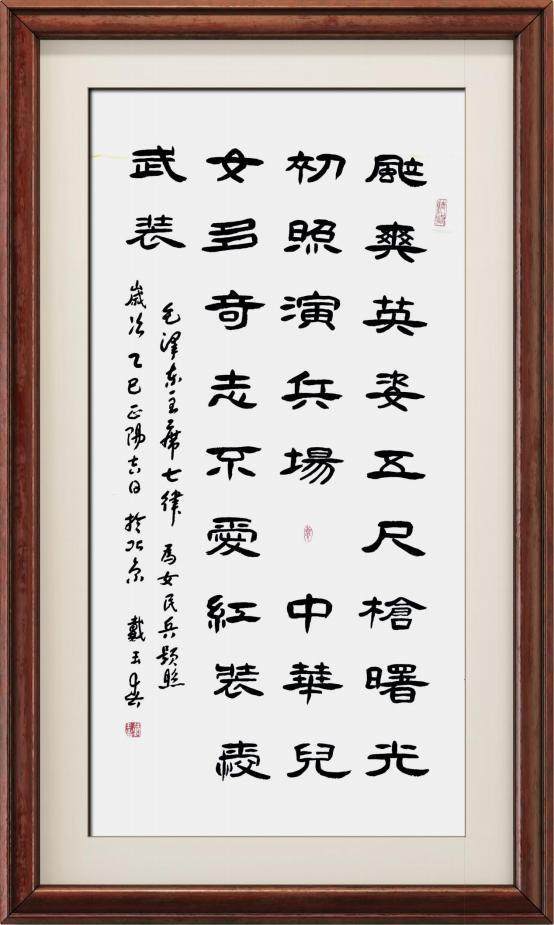 颯爽英姿五尺槍曙光
初照演兵場 中華兒
女多奇志不愛紅装
武装
毛澤东主席七律 為女民兵題照
歲次乙巳正陽吉日 於北京 戴玉